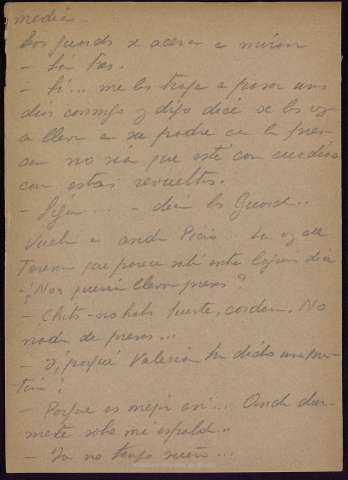 media
los guards se acercan a mirar
- Son tres.
- Sí... me los traje a pasar unos
días conmigo y digo dice se los voy
a llevar a su padre en la
no sea que esté con cuidao
con estas revueltas.
- Sigan ... - dice los Guard..
Vuelve a andar . La voz de
Teresa que parece salir entre lagrimas dice
- ¿Nos querían llevar presos?
- Chits - no habla fuerte, . No
nada de presos...
- Y, ¿porqué Valeriana ha dicho una men-
tira?
- Porque es mejor así... Anda duer-
mete sobre mi espalda..
- Ya no tengo sueño...